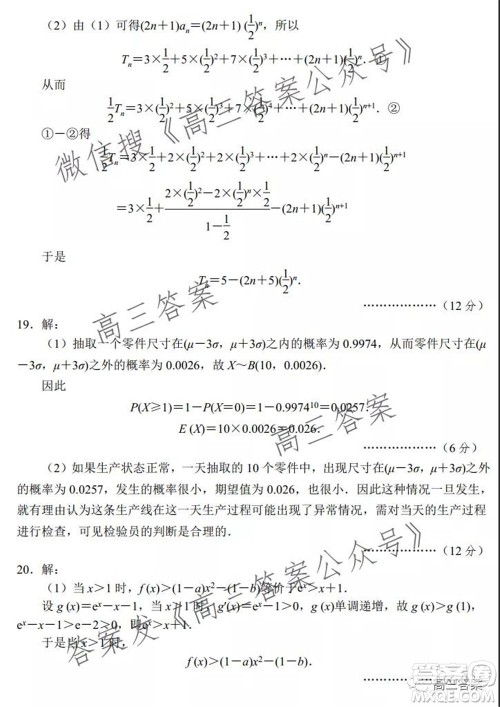 （2）由（1）可得(2n＋1)aₙ＝(2n＋1)(1/2)ⁿ，所以
Tₙ＝3×1/2＋5×(1/2)²＋7×(1/2)³＋…＋(2n＋1)(1/2)ⁿ．①
从而
1/2Tₙ＝3×(1/2)²＋5×(1/2)³＋7×(1/2)⁴＋…＋(2n＋1)(1/2)ⁿ⁺¹．②
①－②得
1/2Tₙ＝3×1/2＋2×(1/2)²＋2×(1/2)³＋…＋2×(1/2)ⁿ－(2n＋1)(1/2)ⁿ⁺¹
＝3×1/2＋(2×(1/2)²－2×(1/2)ⁿ×1/2)/(1－1/2)－(2n＋1)(1/2)ⁿ⁺¹
于是
Tₙ＝5－(2n＋5)(1/2)ⁿ．
………………（12 分）
19．解：
（1）抽取一个零件尺寸在(μ－3σ，μ＋3σ)之内的概率为 0.9974，从而零件尺寸在(μ
－3σ，μ＋3σ)之外的概率为 0.0026，故 X～B(10，0.0026)．
因此
P(X≥1)＝1－P(X＝0)＝1－0.9974¹⁰＝0.0257．
E (X)＝10×0.0026＝0.026．
………………（6 分）
（2）如果生产状态正常，一天抽取的 10 个零件中，出现尺寸在(μ－3σ，μ＋3σ)之外
的概率为 0.0257，发生的概率很小，期望值为 0.026，也很小．因此这种情况一旦发生，
就有理由认为这条生产线在这一天生产过程可能出现了异常情况，需对当天的生产过程
进行检查，可见检验员的判断是合理的．
………………（12 分）
20．解：
（1）当 x＞1 时，f (x)＞(1－a)x²－(1－b)等价于 eˣ＞x＋1．
设 g (x)＝eˣ－x－1，当 x＞1 时，g′(x)＝eˣ－1＞0，g (x)单调递增，故 g (x)＞g (1)，
eˣ－x－1＞e－2＞0，即 eˣ＞x＋1．
于是当 x＞1 时，
f (x)＞(1－a)x²－(1－b)．
………………
微信搜《高三答案公众号》
高三答案
高三答案
答案友《高三答案公众号》
高三答案